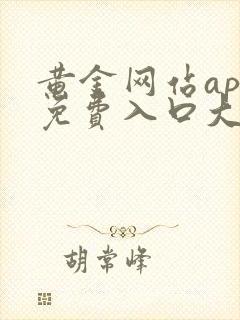 黄金网站ap
免费入口大
胡常峰